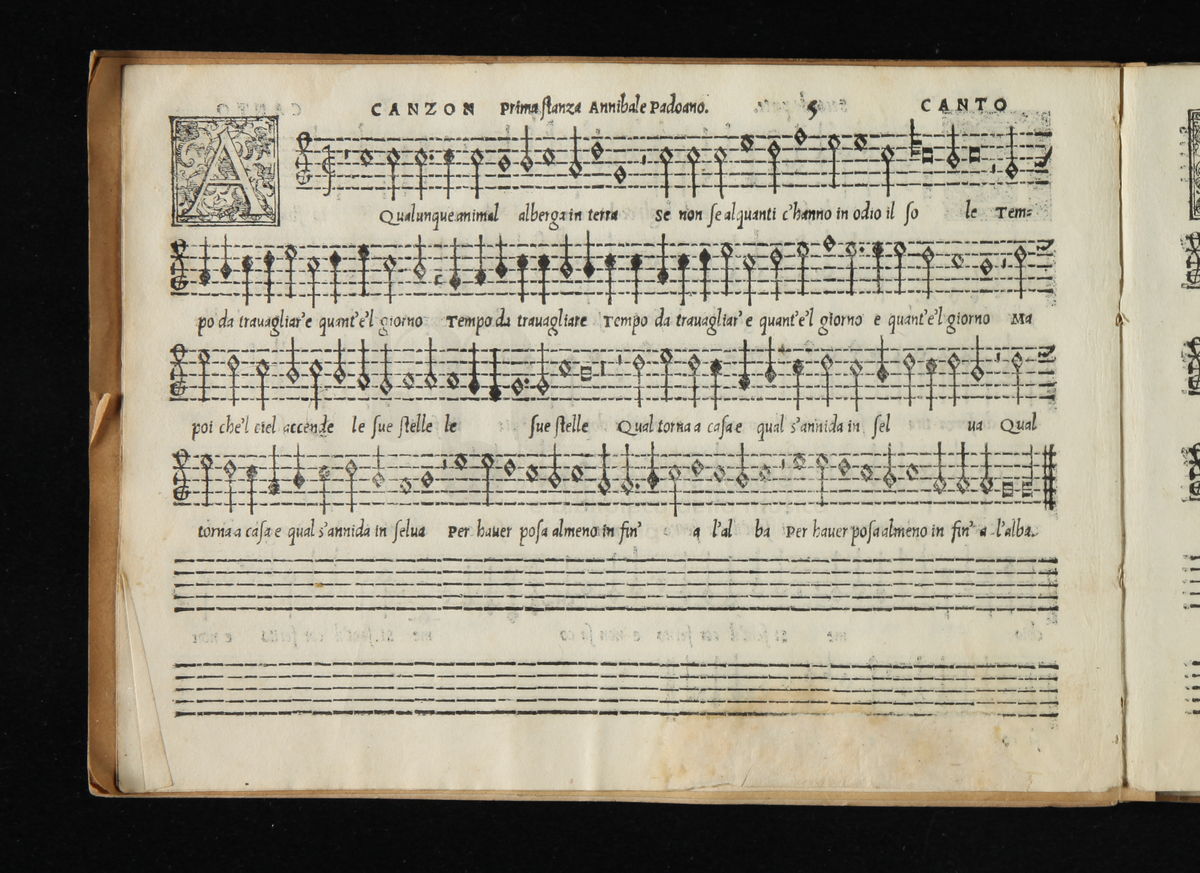 CANZON Prima stanza Annibale Padoano. 5 CANTO
A Qualunque animal alberga in terra Se non se alquanti c'hanno in odio il so le Tem=
po da trauagliar'e quant'e'l giorno Tempo da trauagliare Tempo da trauagliar'e quant'e'l giorno e quant'e'l giorno Ma
poi che'l ciel accende le sue stelle le sue stelle Qual torna a casa e qual s'annida in sel ua Qual
torna a casa e qual s'annida in selua Per hauer posa almeno in fin' a l'al ba Per hauer posa almeno in fin' a l'alba.